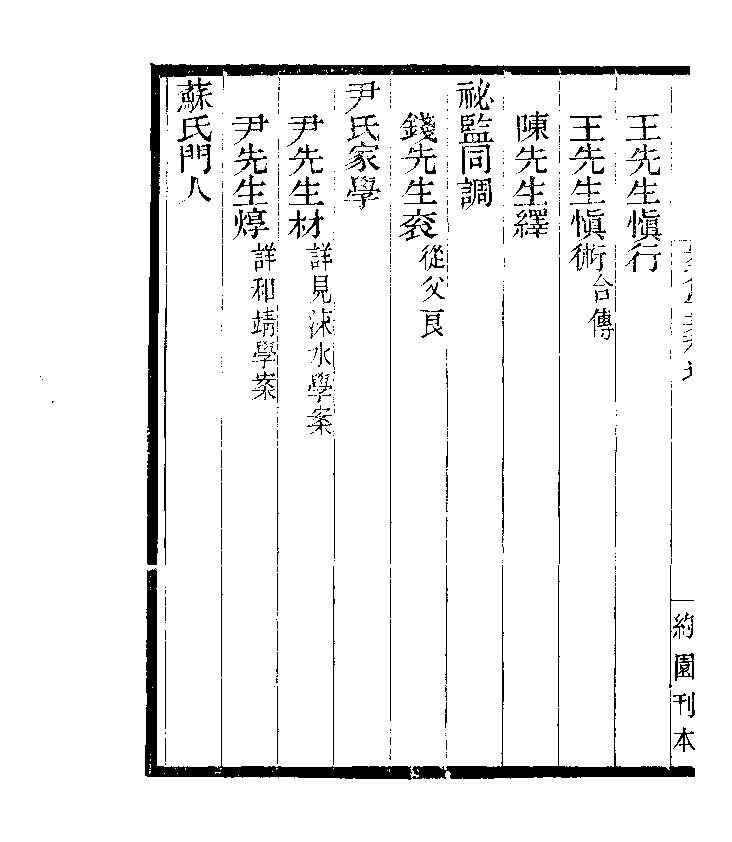 王先生愼行
王先生愼術合傳
陳先生繹
祕監同調
錢先生袞從父良
尹氏家學
尹先生材詳見涑水學案
尹先生焞詳和靖學案
蘇氏門人
約園刊本